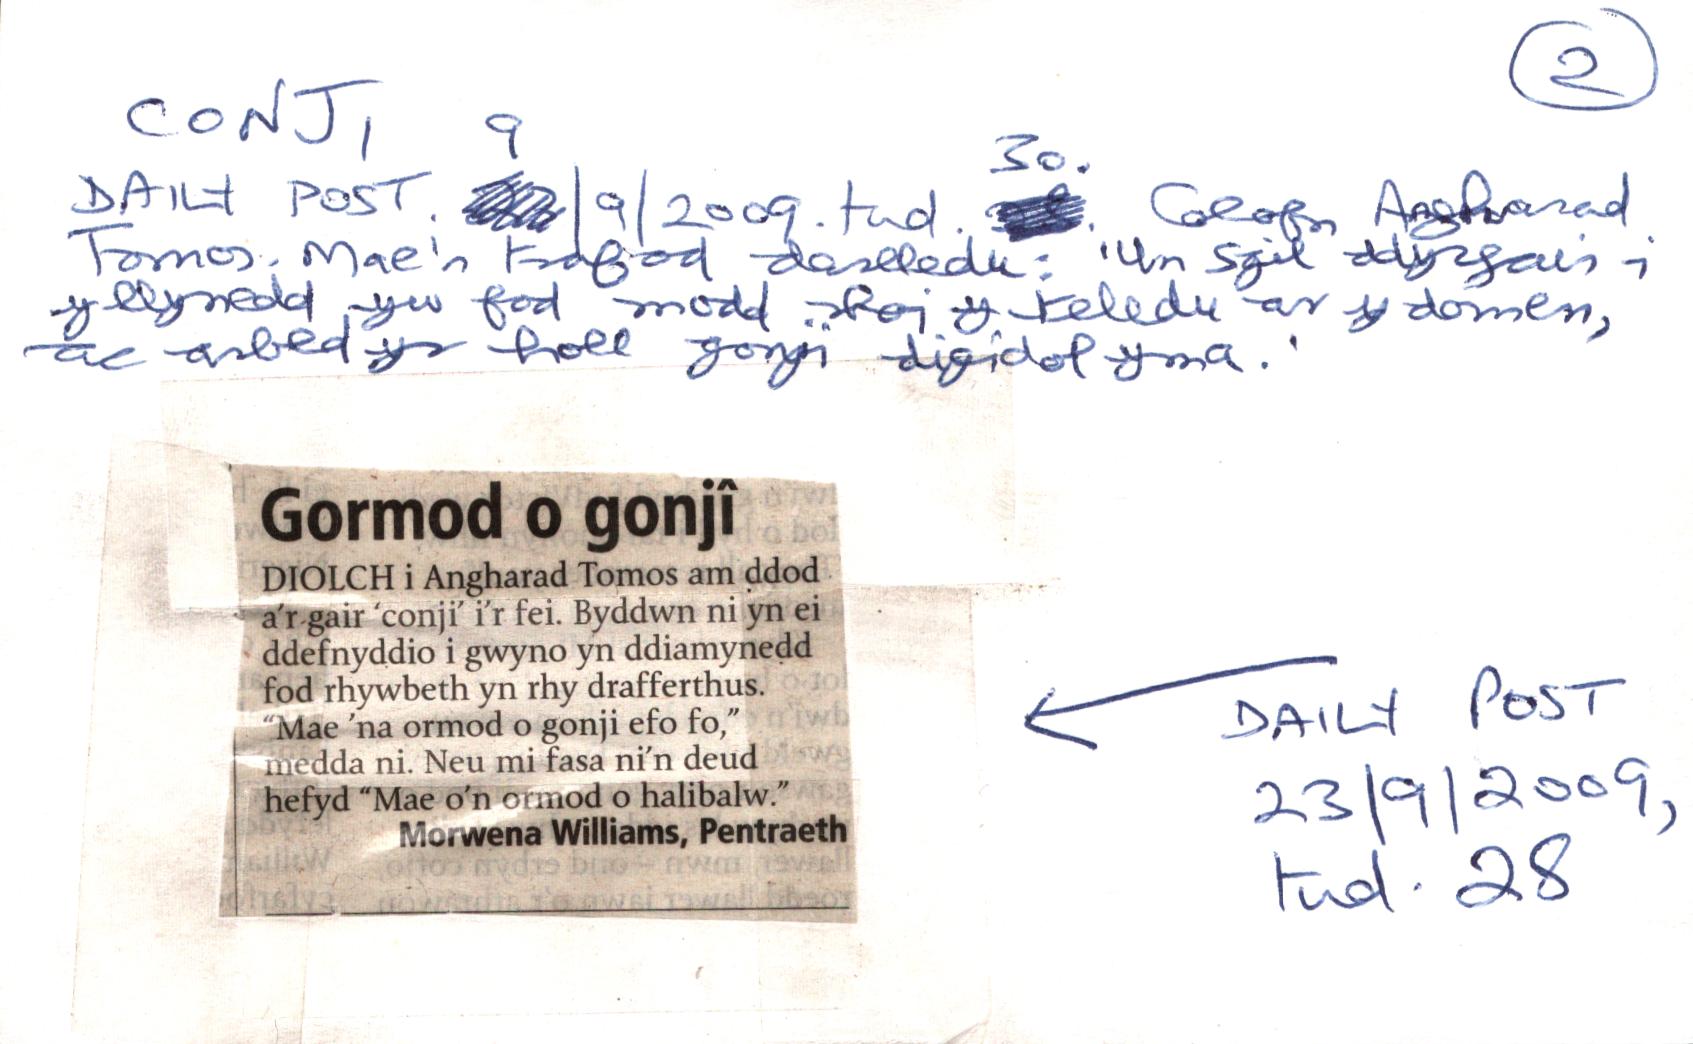 2
CONJI
9
30.
DAILY POST. /9/2009. tud. . Colofn Angharad
Tomos. Mae'n trafod darlledu: 'Un sgil ddysgais i
y llynedd yw fod modd rhoi y teledu ar y domen,
ac arbed yr holl gonji digidol yma.'
Gormod o gonjî
DIOLCH i Angharad Tomos am ddod
a'r gair 'conji' i'r fei. Byddwn ni yn ei
ddefnyddio i gwyno yn ddiamynedd
fod rhywbeth yn rhy drafferthus.
"Mae 'na ormod o gonji efo fo,"
medda ni. Neu mi fasa ni'n deud
hefyd "Mae o'n ormod o halibalw."
Morwena Williams, Pentraeth
DAILY POST
23/9/2009,
tud. 28